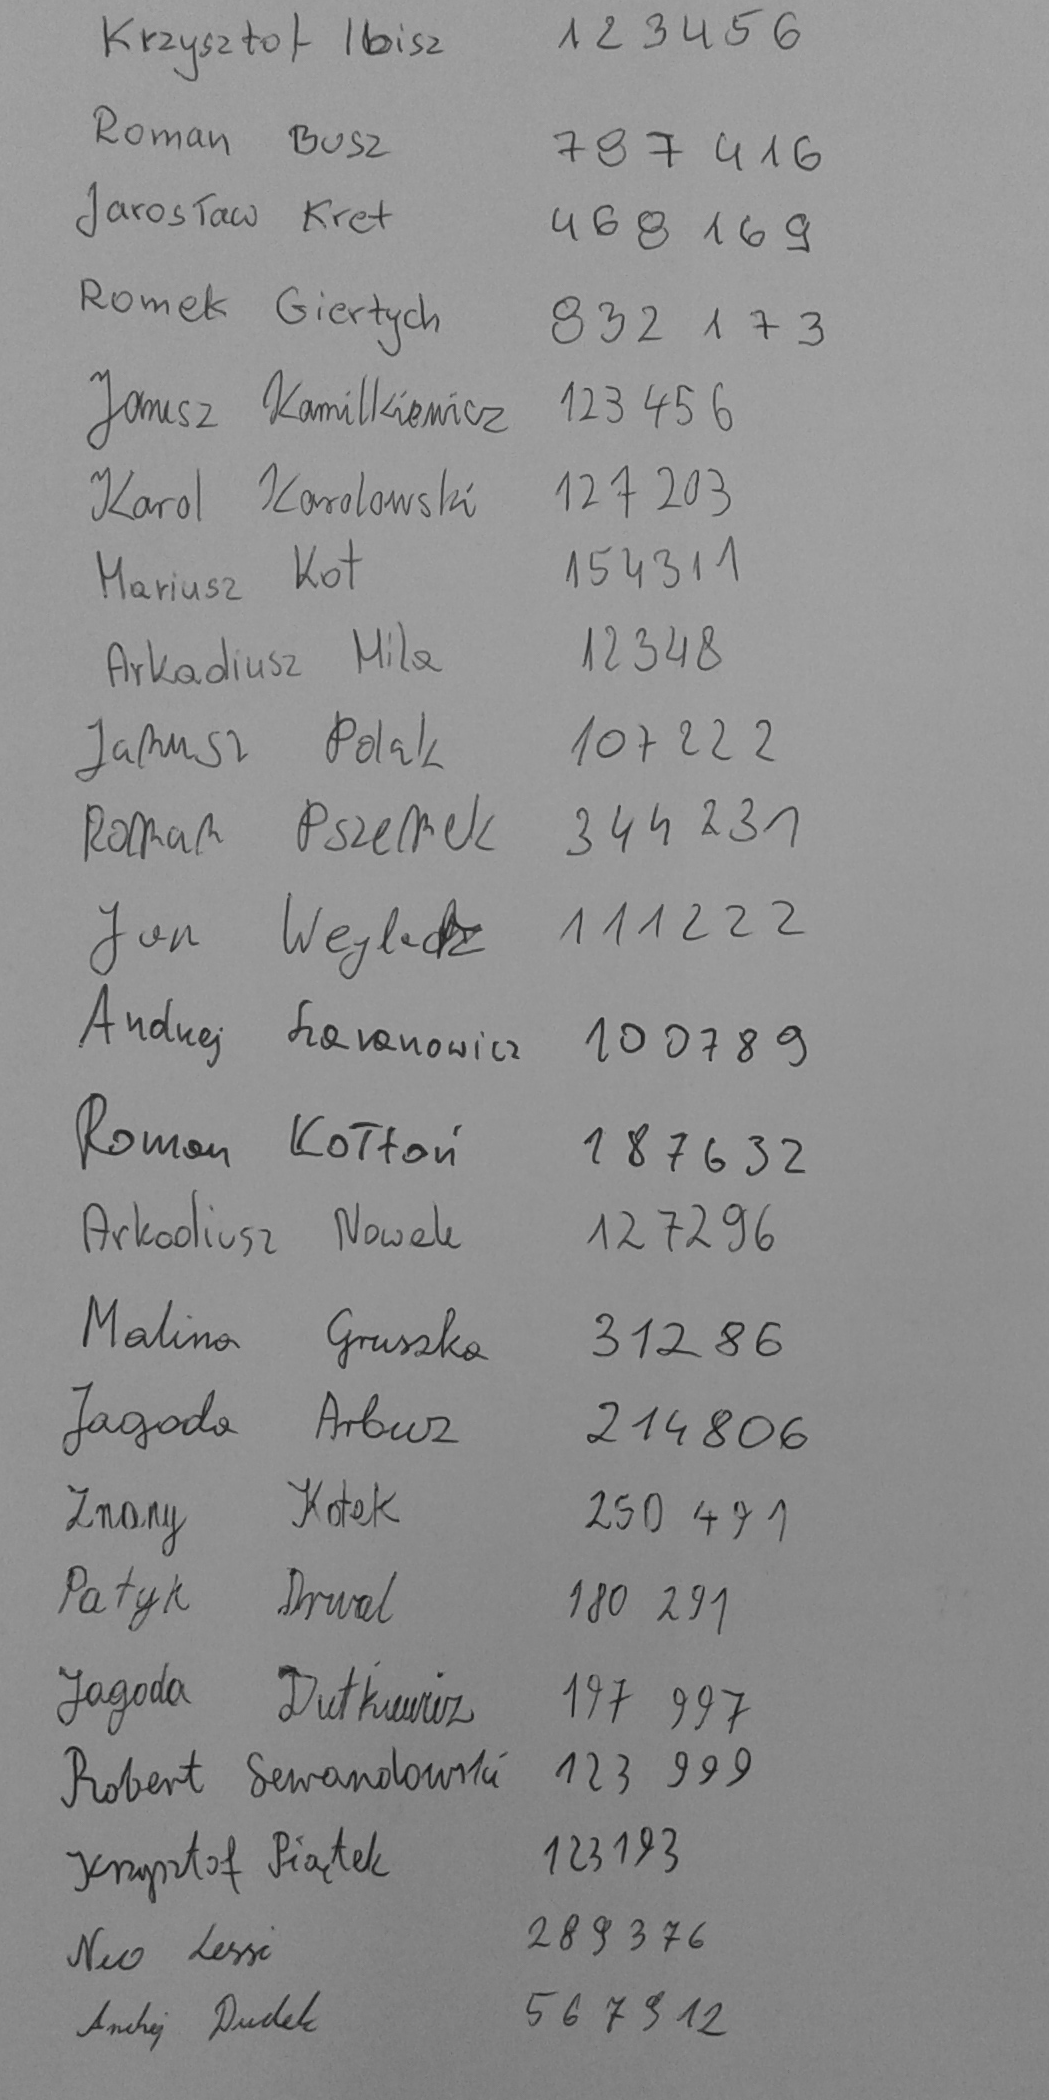 Krzysztof Ibisz 123456
Roman Busz 787416
Jarosław Kret 468 169
Romek Giertych 832 173
Janusz Kamilkiewicz 123 456
Karol Karolowski 127 203
Mariusz Kot 154311
Arkadiusz Mila 12348
Janusz Polak 107222
Roman Pszemek 344 231
Jan 111222
Andrzej Szaranowicz 100789
Roman Kołtoń 187632
Arkadiusz Nowak 127296
Malina Gruszka 31286
Jagoda Arbuz 214806
Znany Kotek 250 491
Patyk Drwal 180 291
Jagoda Dutkiewicz 197 997
Robert Lewandowski 123 999
Krzysztof Piątek 123193
Neo Lessi 289376
Andrzej Dudek 567912